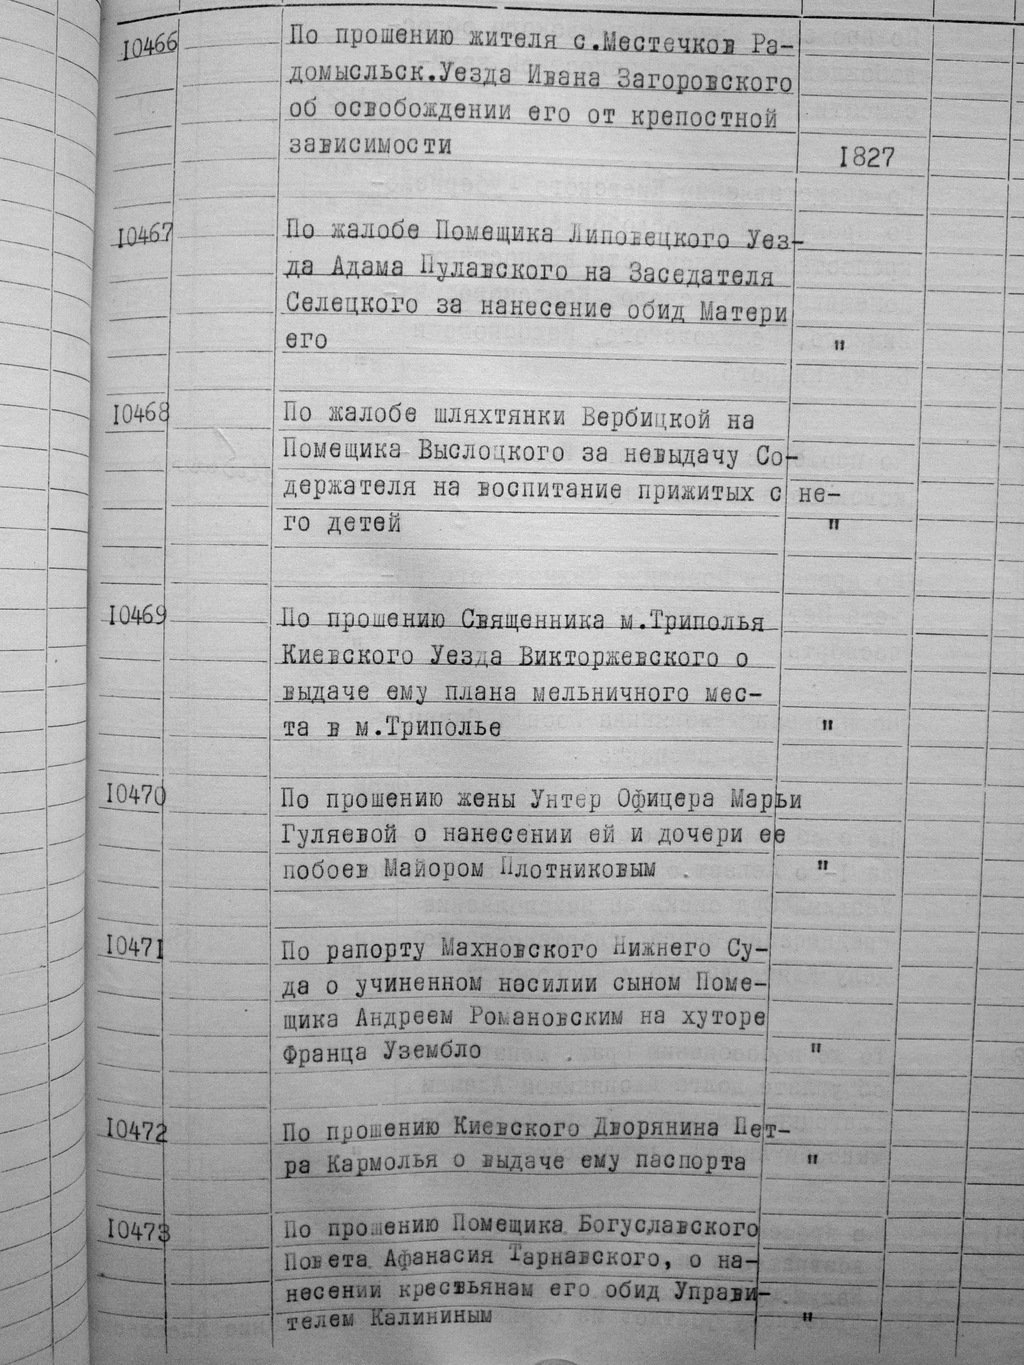 10466 По прошению жителя с.Местечков Ра-
домысльск.Уезда Ивана Загоровского
об освобождении его от крепостной
зависимости 1827
10467 По жалобе Помещика Липовецкого Уез-
да Адама Пулавского на Заседателя
Селецкого за нанесение обид Матери
его "
10468 По жалобе шляхтянки Вербицкой на
Помещика Выслоцкого за невыдачу Со-
держателя на воспитание прижитых с не-
го детей "
10469 По прошению Священника м.Триполья
Киевского Уезда Викторжевского о
выдаче ему плана мельничного мес-
та в м.Триполье "
10470 По прошению жены Унтер Офицера Марьи
Гуляевой о нанесении ей и дочери ее
побоев Майором Плотниковым . "
10471 По рапорту Махновского Нижнего Су-
да о учиненном насилии сыном Поме-
щика Андреем Романовским на хуторе
Франца Узембло "
10472 По прошению Киевского Дворянина Пет-
ра Кармолья о выдаче ему паспорта "
10473 По прошению Помещика Богуславского
Повета Афанасия Тарнавского, о на-
несении крестьянам его обид Управи-
телем Калининым "